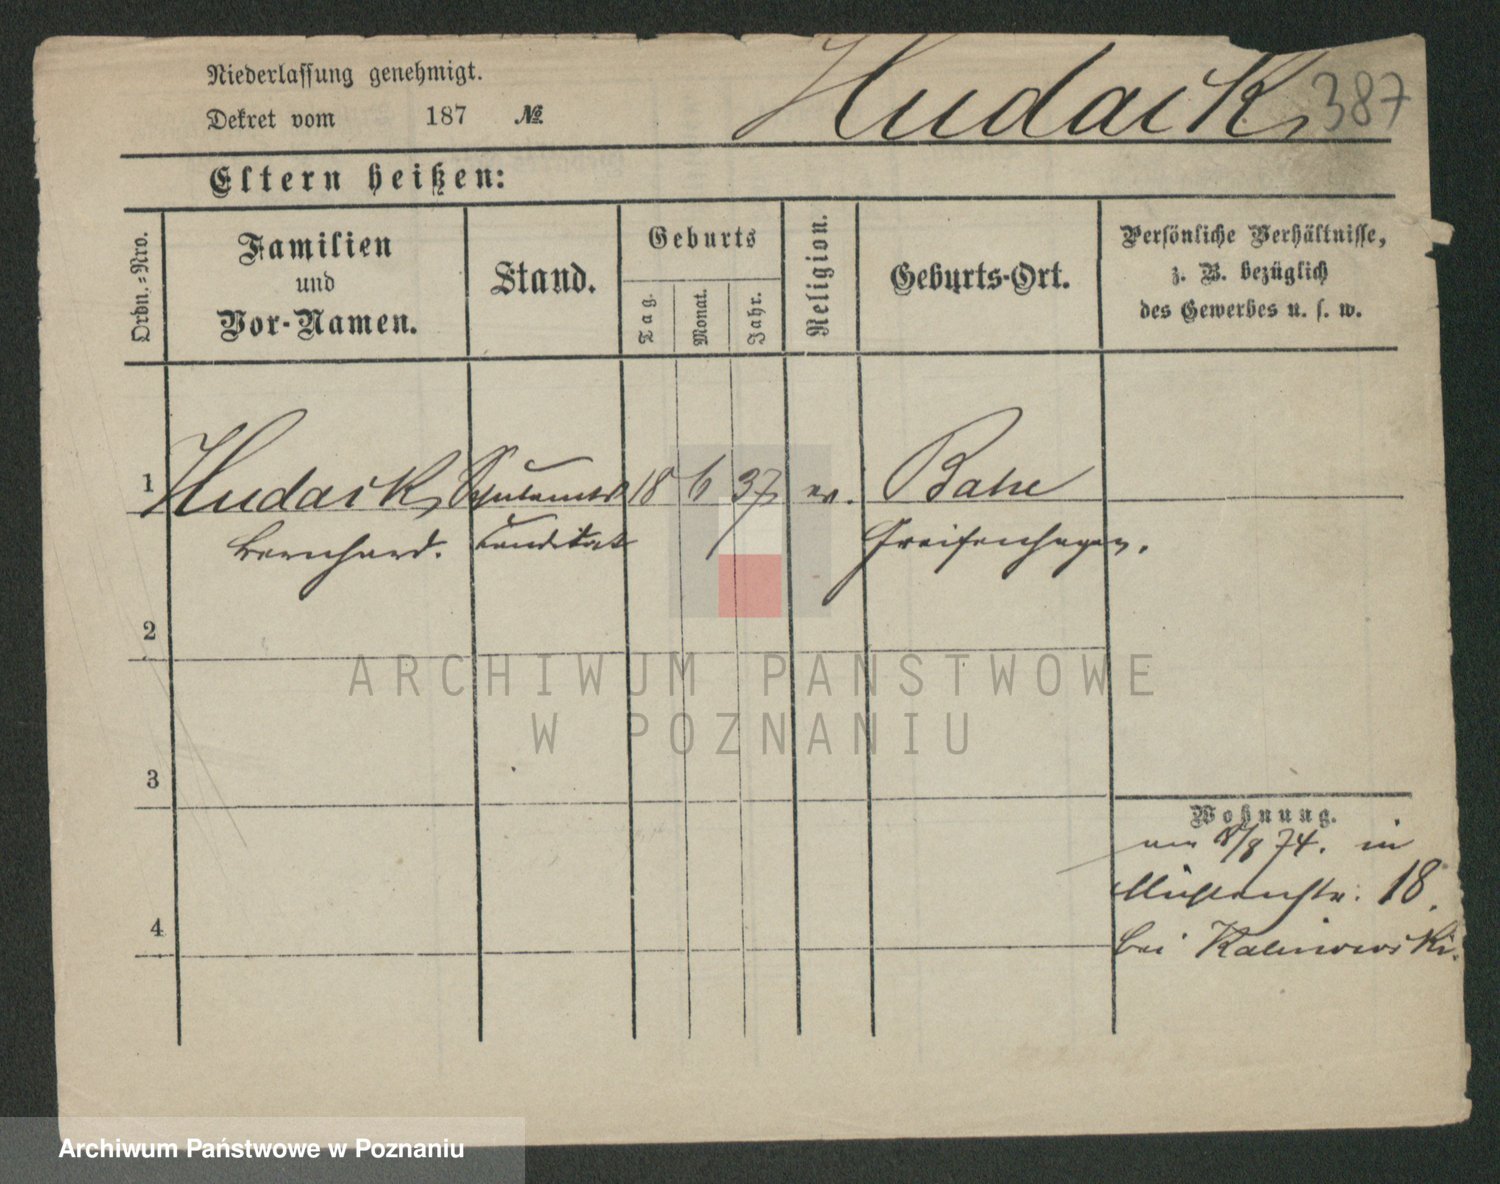 Niederlassung genehmigt.
Dekret vom 187 №
Hudack, 387
Eltern heißen:
Ordn.-Nro.
Familien
und
Vor-Namen.
Stand.
Geburts
Tag.
Monat.
Jahr.
Religion.
Geburts-Ort.
Persönliche Verhältnisse,
z. B. bezüglich
des Gewerbes u. s. w.
1 Hudack, Schulamts 18 6 37 ev.
Bernhard. Candidat Greifenhagen.
2
3
4
Wohnung.
am 8/8 74. in
Mühlenstr. 18.
bei Kalinowski.
ARCHIWUM PANSTWOWE
W POZNANIU
Archiwum Państwowe w Poznaniu